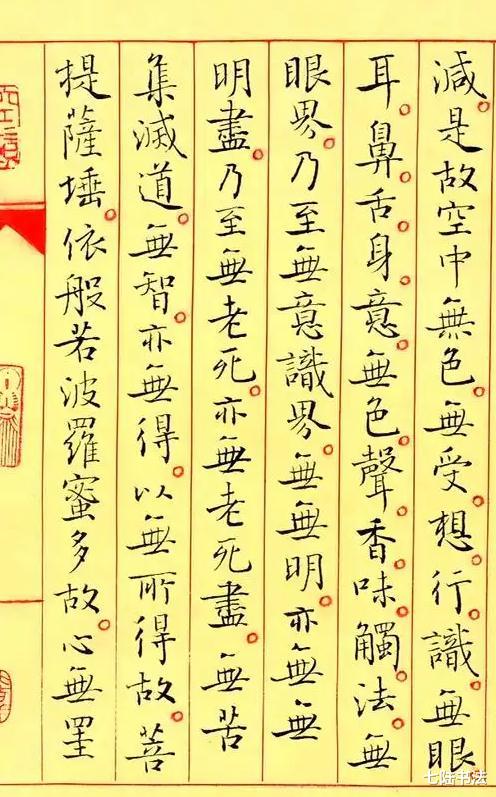 減。是故空中無色。無受。想。行。識。無眼。
耳。鼻。舌。身。意。無色。聲。香。味。觸。法。無
眼界。乃至無意識界。無無明。亦無無
明盡。乃至無老死。亦無老死盡。無苦
集滅道。無智。亦無得。以無所得故。菩
提薩埵。依般若波羅蜜多故。心無罣
七陆书法